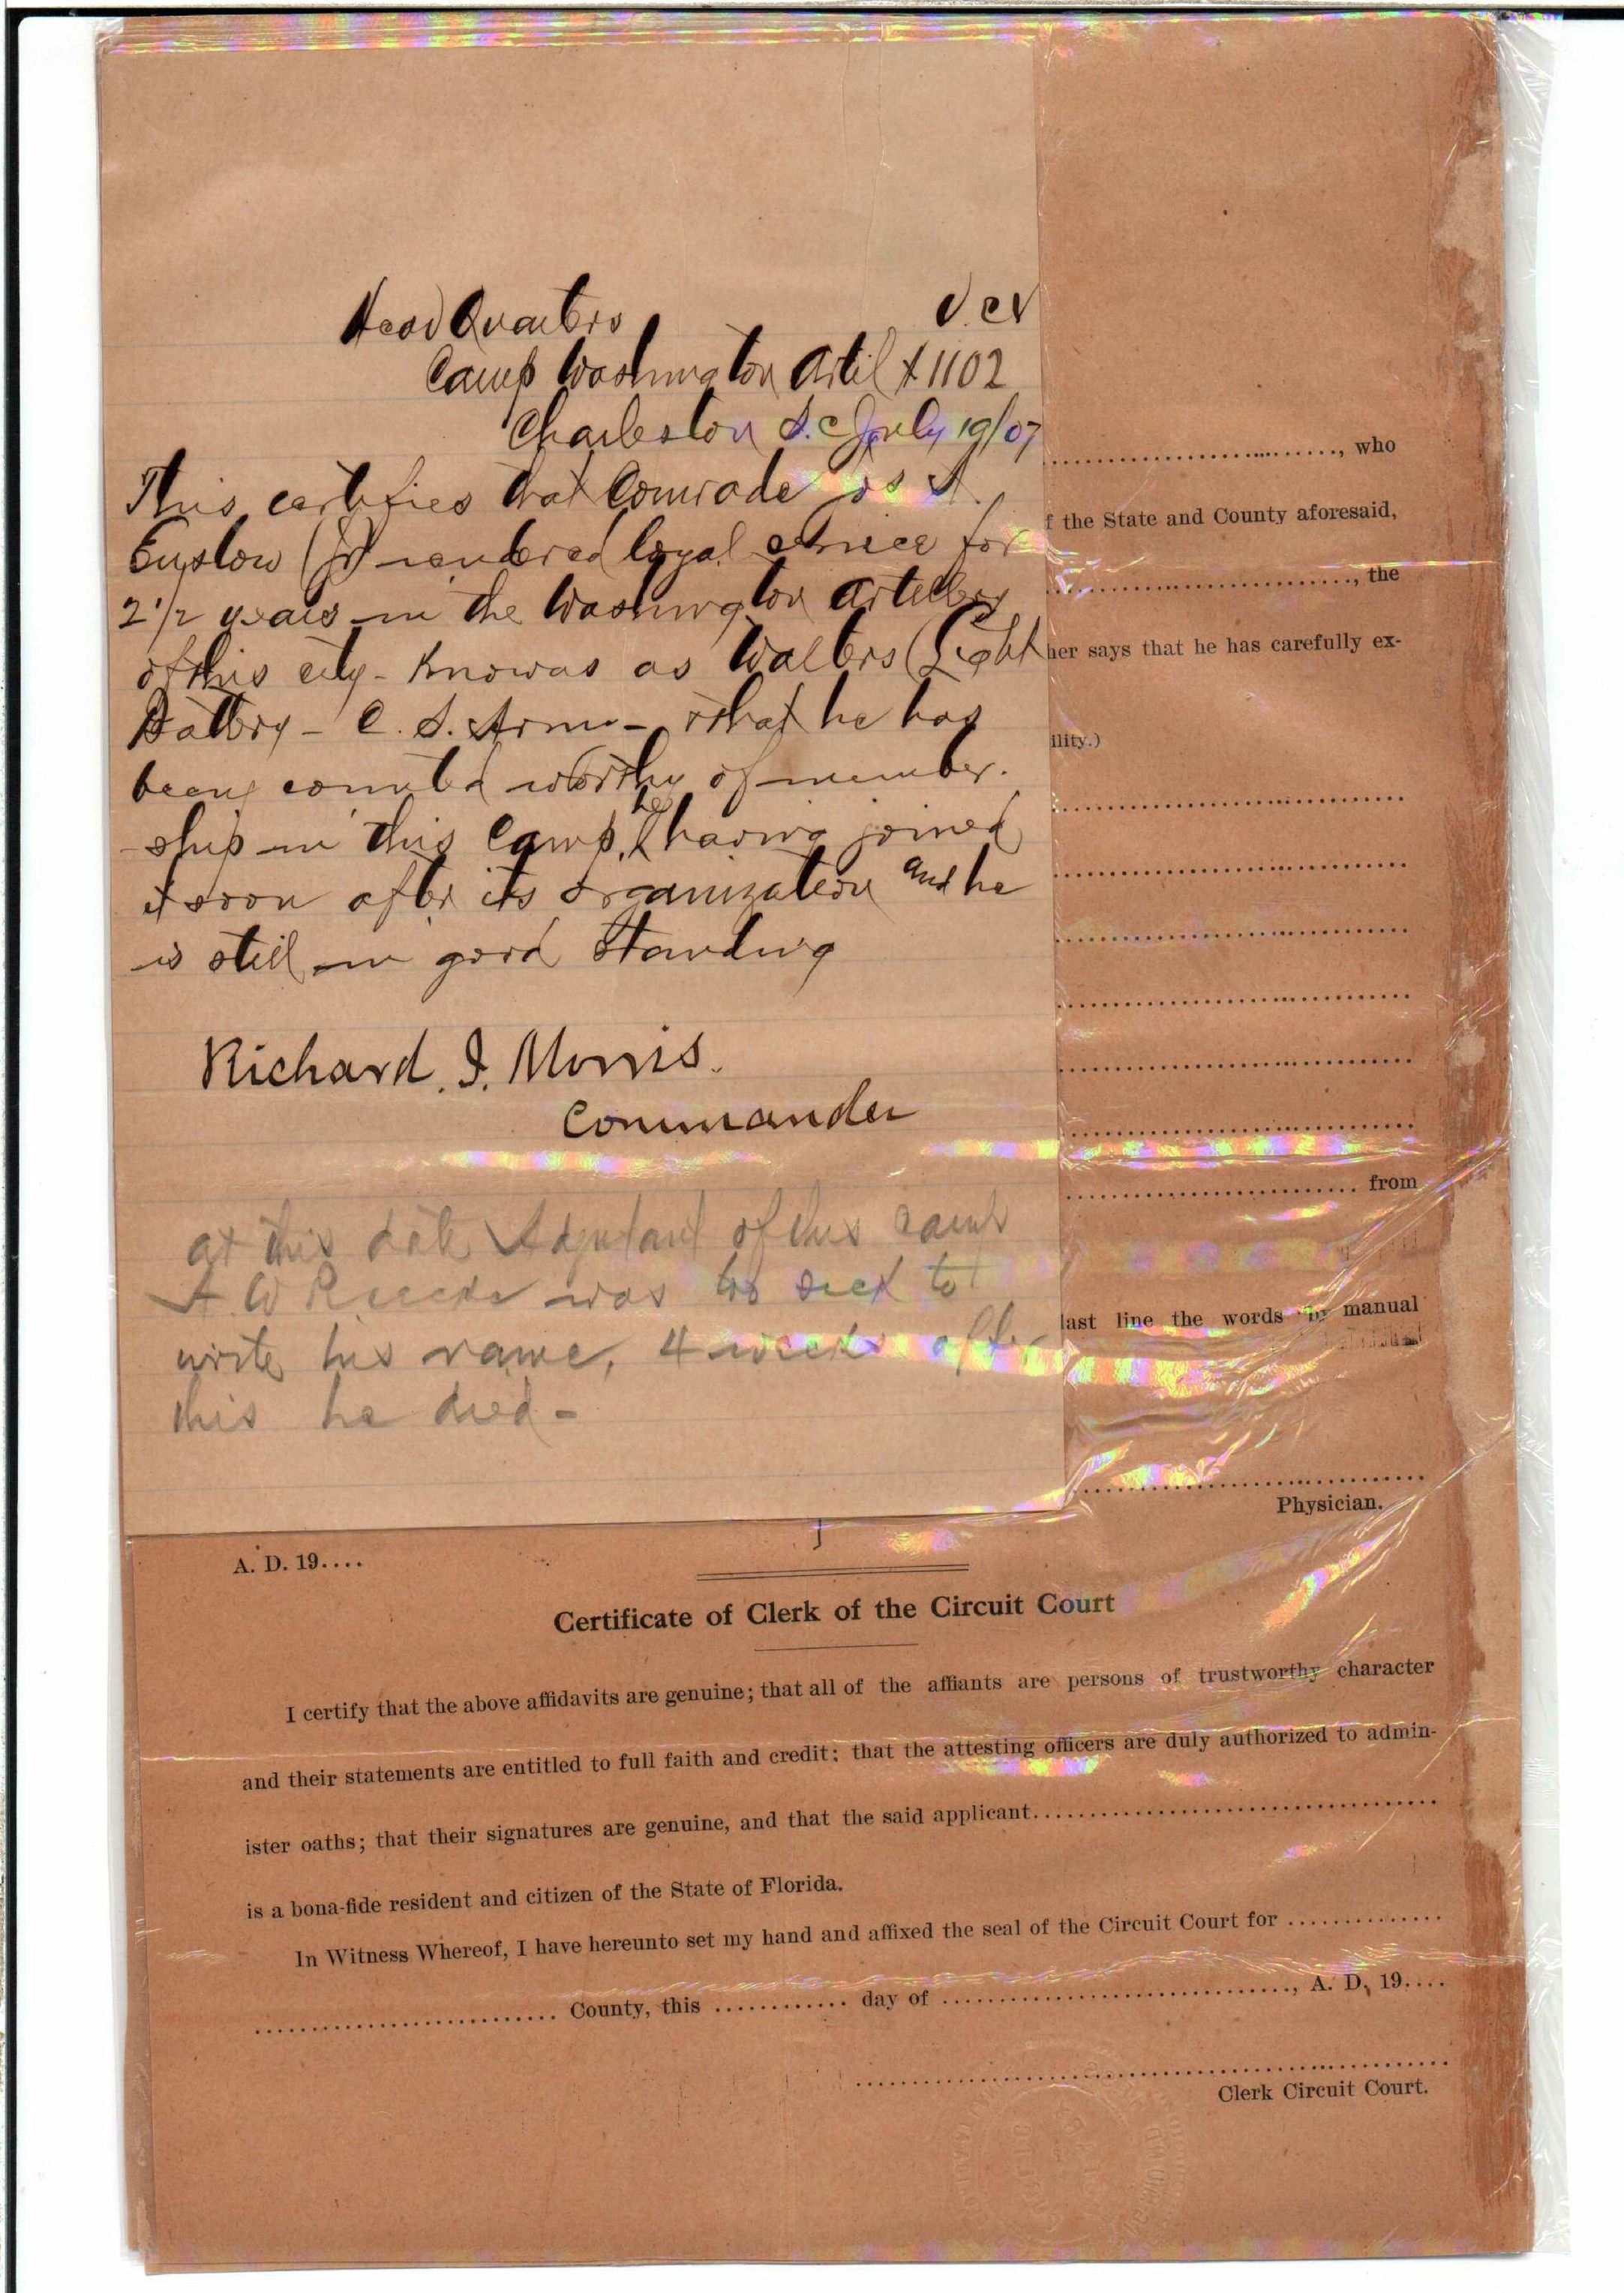 Head Quarters U.CV
Camp Washington Artil # 1102
Charleston S.C July 19/07
This certifies that Comrade Jos A.
Enslow (Jr) rendered loyal service for
2 1/2 years in the Washington Artillery
of this city - Knowas as Walters (Light
Battery - C. S. Army - that he has
been counted worthy of member.
ship in this Camp, he having joined
it soon after its organization and he
is still in good Standing
Richard. I. Morris.
Commander
at this date Adjutant of this camp
A. W was too sick to
write his name, 4 weeks after
this he died -
, who
f the State and County aforesaid,
, the
her says that he has carefully ex-
ility.)
from
last line the words "by manual
Physician.
A. D. 19....
Certificate of Clerk of the Circuit Court
I certify that the above affidavits are genuine; that all of the affiants are persons of trustworthy character
and their statements are entitled to full faith and credit: that the attesting officers are duly authorized to admin-
ister oaths; that their signatures are genuine, and that the said applicant
is a bona-fide resident and citizen of the State of Florida.
In Witness Whereof, I have hereunto set my hand and affixed the seal of the Circuit Court for
County, this day of , A. D, 19....
Clerk Circuit Court.